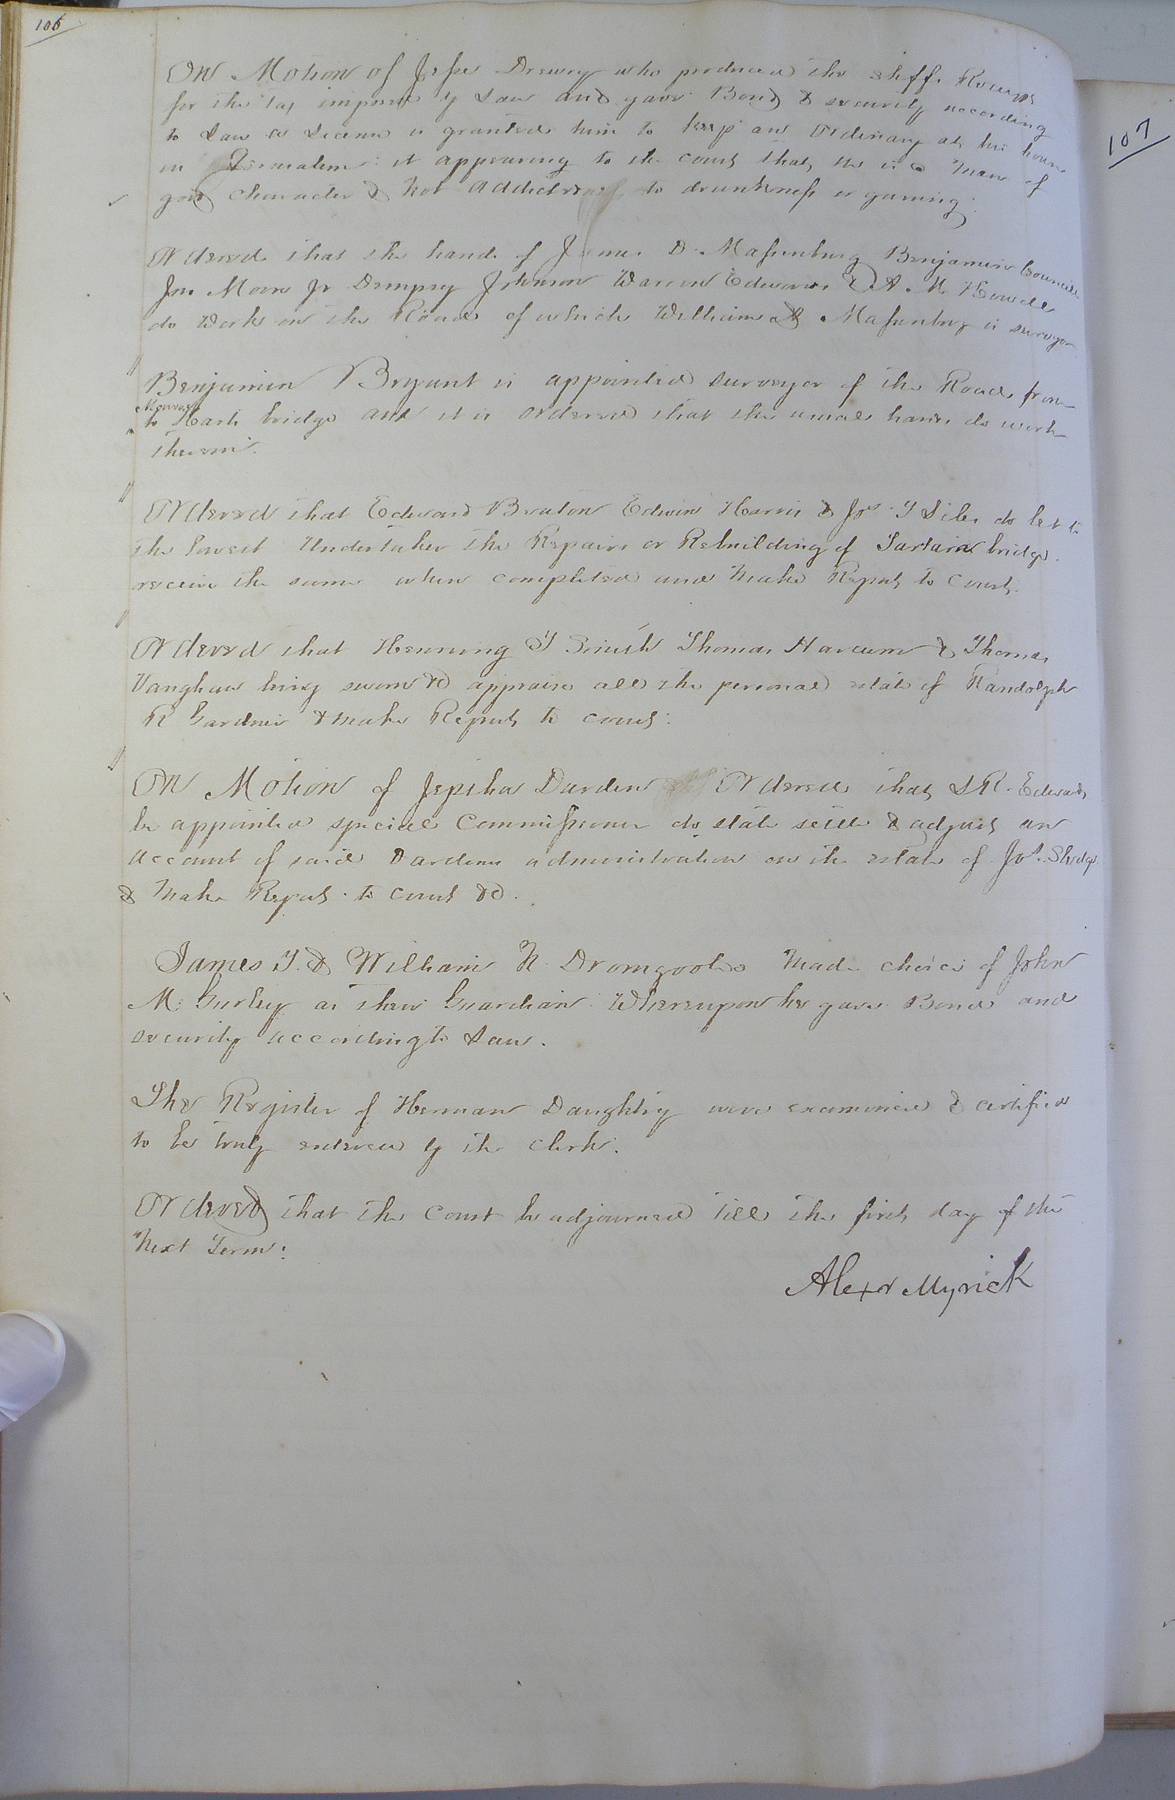 106
On Motion of Jesse Drewry who produced the shffs Receipt
for the tax imposed by Law and gave Bond & security according
to Law a License is granted him to keep an Ordinary at his house
in Jerusalem it appearing to the court that he is a man of
good character & not addicted to drunkness or gaming.
Ordered that the hands of James D. Massenburg Benjamin Councill
Jno. Moore Jr Dempsey Johnson Warren Edwards & A. M. Howell
do work on the Road of which William Massenburg is surveyor
Benjamin Bryant is appointed Surveyor of the Road from
to Harts bridge and it is ordered that the usual hands do work
therein.
Ordered that Edward Bruton Edwin Harris & Jos. T Liles do let to
the lowest Undertaker the Repairs or Rebuilding of bridge
receive the same when completed and make Report to Court.
Ordered that Henning T Smith Thomas Harcum & Thomas
Vaughan being sworn &c appraise all the personal estate of Randolph
R Gardner & make Report to court.
On Motion of Jeptha Darden Ordered that L R. Edwards
be appointed special Commissioner do state settle & adjust an
account of said Dardens administration on the estate of Jos.
& make Report to court &c.
James T. & William N. Dromgoole made choice of John
M. Gurley as their Guardian Whereupon he gave Bond and
security according to Law.
The Register of Herman Daughtry were examined & certified
to be truly entered by the clerk.
Ordered that the Court be adjourned till the first day of the
Next Term.
Alexr Myrick
107